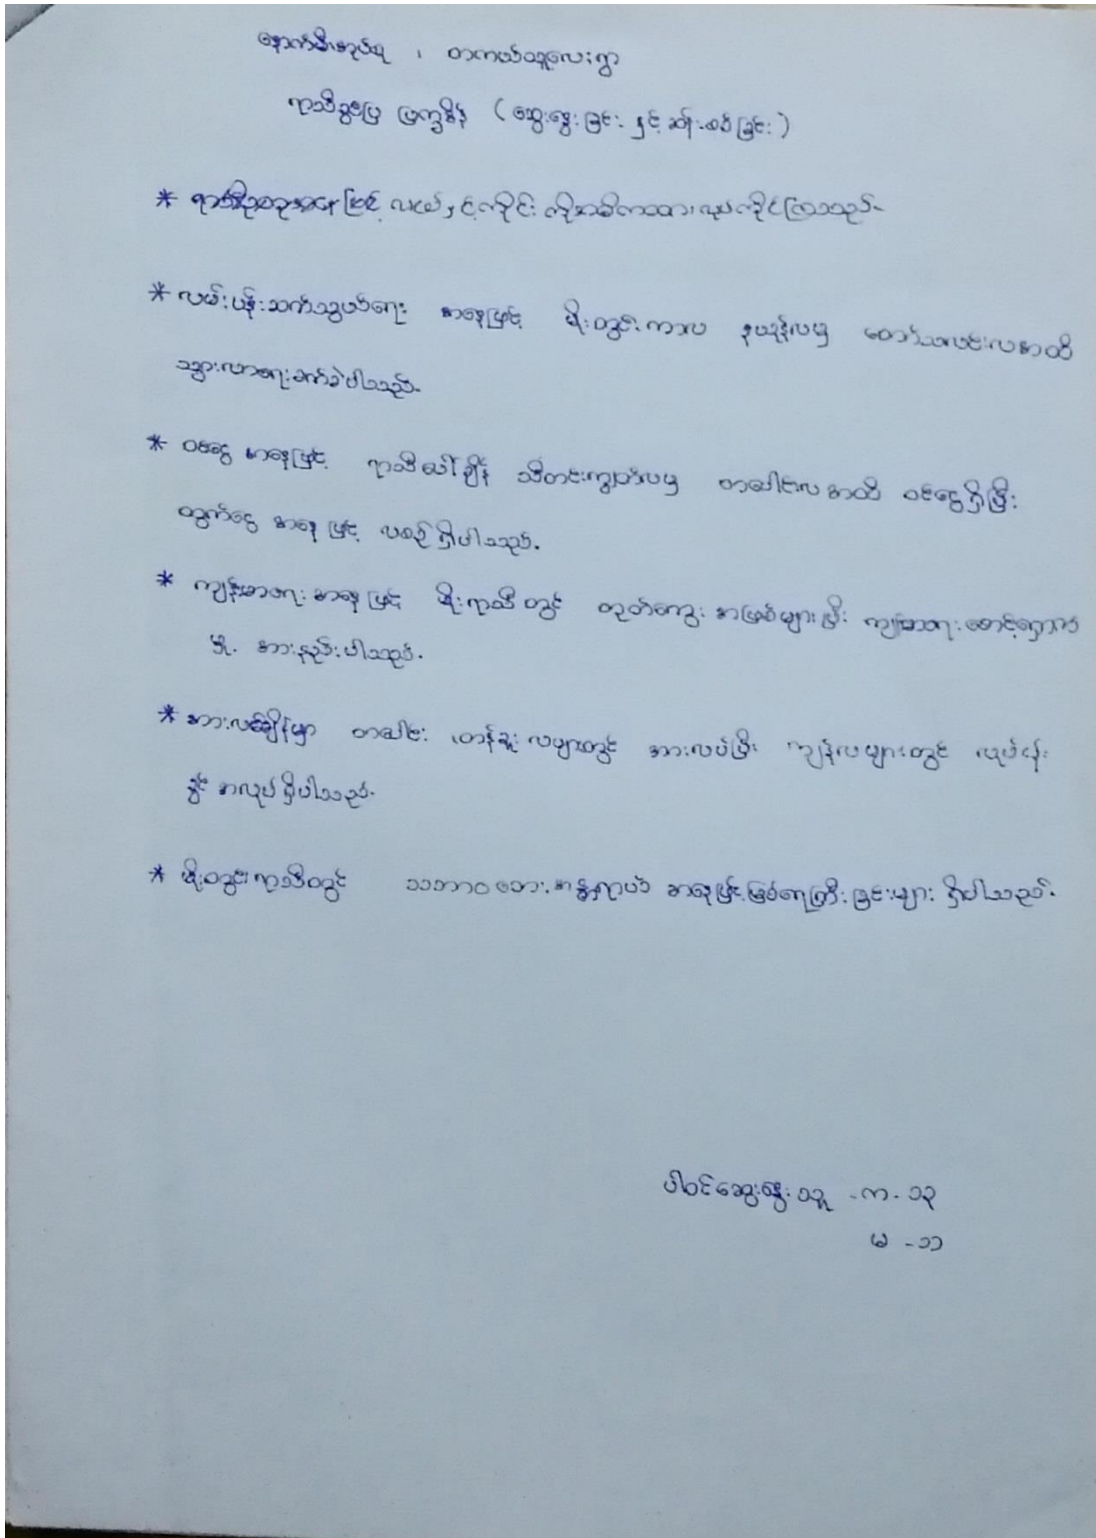 နောက်မီးအုပ်စု ၊ တကယ်သူလေးရွာ
ရာသီခွင်ပြ ပြက္ခဒိန် (ဆွေးနွေးခြင်း နှင့် ဆန်းစစ်ခြင်း)
* ရာသီဥတုအနေဖြင့် လယ်နှင့်ကိုင်း ကိုအဓိကထားလုပ်ကိုင်ကြသည်။
* လမ်းပန်းဆက်သွယ်ရေး အနေဖြင့် မိုးတွင်းကာလ နယုန်လမှ တော်သလင်းလအထိ
သွားလာရေးခက်ခဲပါသည်။
* ဝင်ငွေ အနေဖြင့် ရာသီပေါ်ချိန် သီတင်းကျွတ်လမှ တပေါင်းလအထိ ဝင်ငွေရှိပြီး
ထွက်ငွေ အနေဖြင့် လစဉ်ရှိပါသည်။
* ကျန်းမာရေးအနေဖြင့် မိုးရာသီတွင် တုတ်ကွေး အဖြစ်များပြီး ကျန်းမာရေးစောင့်ရှောက်
မှု အားနည်းပါသည်။
* အားလပ်ချိန်မှာ တပေါင်း၊ တန်ခူးလများတွင် အားလပ်ပြီး ကျန်လများတွင် လုပ်ငန်း
ခွင် အလုပ်ရှိပါသည်။
* မိုးတွင်းရာသီတွင် သဘာဝဘေးအန္တရာယ် အနေဖြင့် မြစ်ရေကြီးခြင်းများ ရှိပါသည်။
ပါဝင်ဆွေးနွေးသူ - ကျ - ၁၃
မ - ၁၁